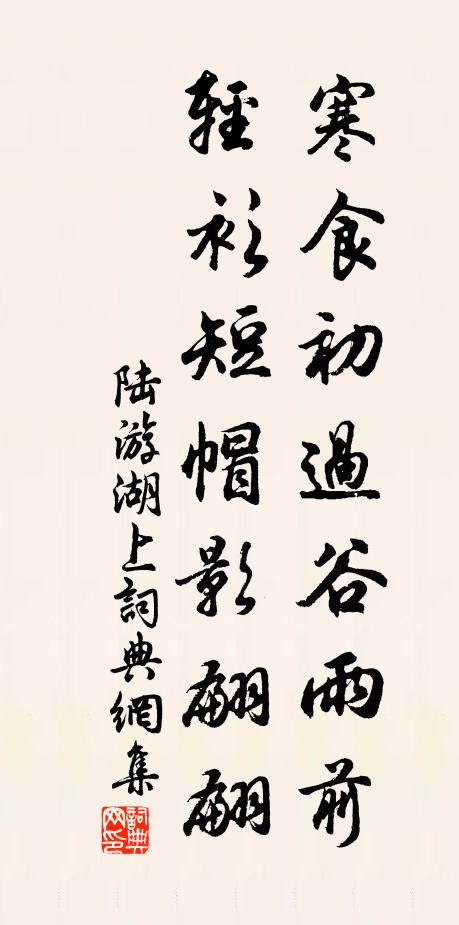 寒食初過谷雨前
輕衫短帽影翩翩
陸游湖上詞典網集
詞典網印